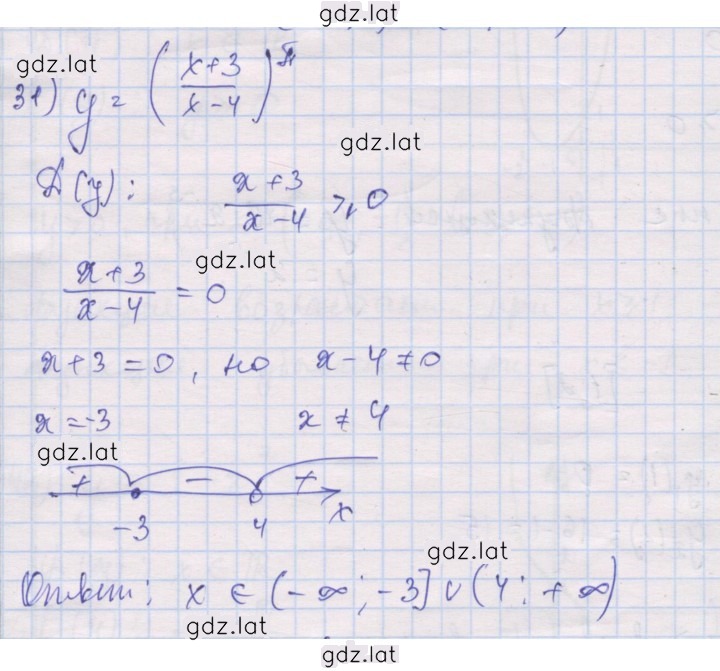 gdz.lat
gdz.lat
31) y = ((x+3)/(x-4))^π
gdz.lat
D(y): (x+3)/(x-4) ≥ 0
gdz.lat
(x+3)/(x-4) = 0
x+3=0, но x-4≠0
x=-3 x≠4
gdz.lat
+ - +
-3 4 x
gdz.lat
Ответ: x ∈ (-∞; -3] ∪ (4; +∞)
gdz.lat
gdz.lat